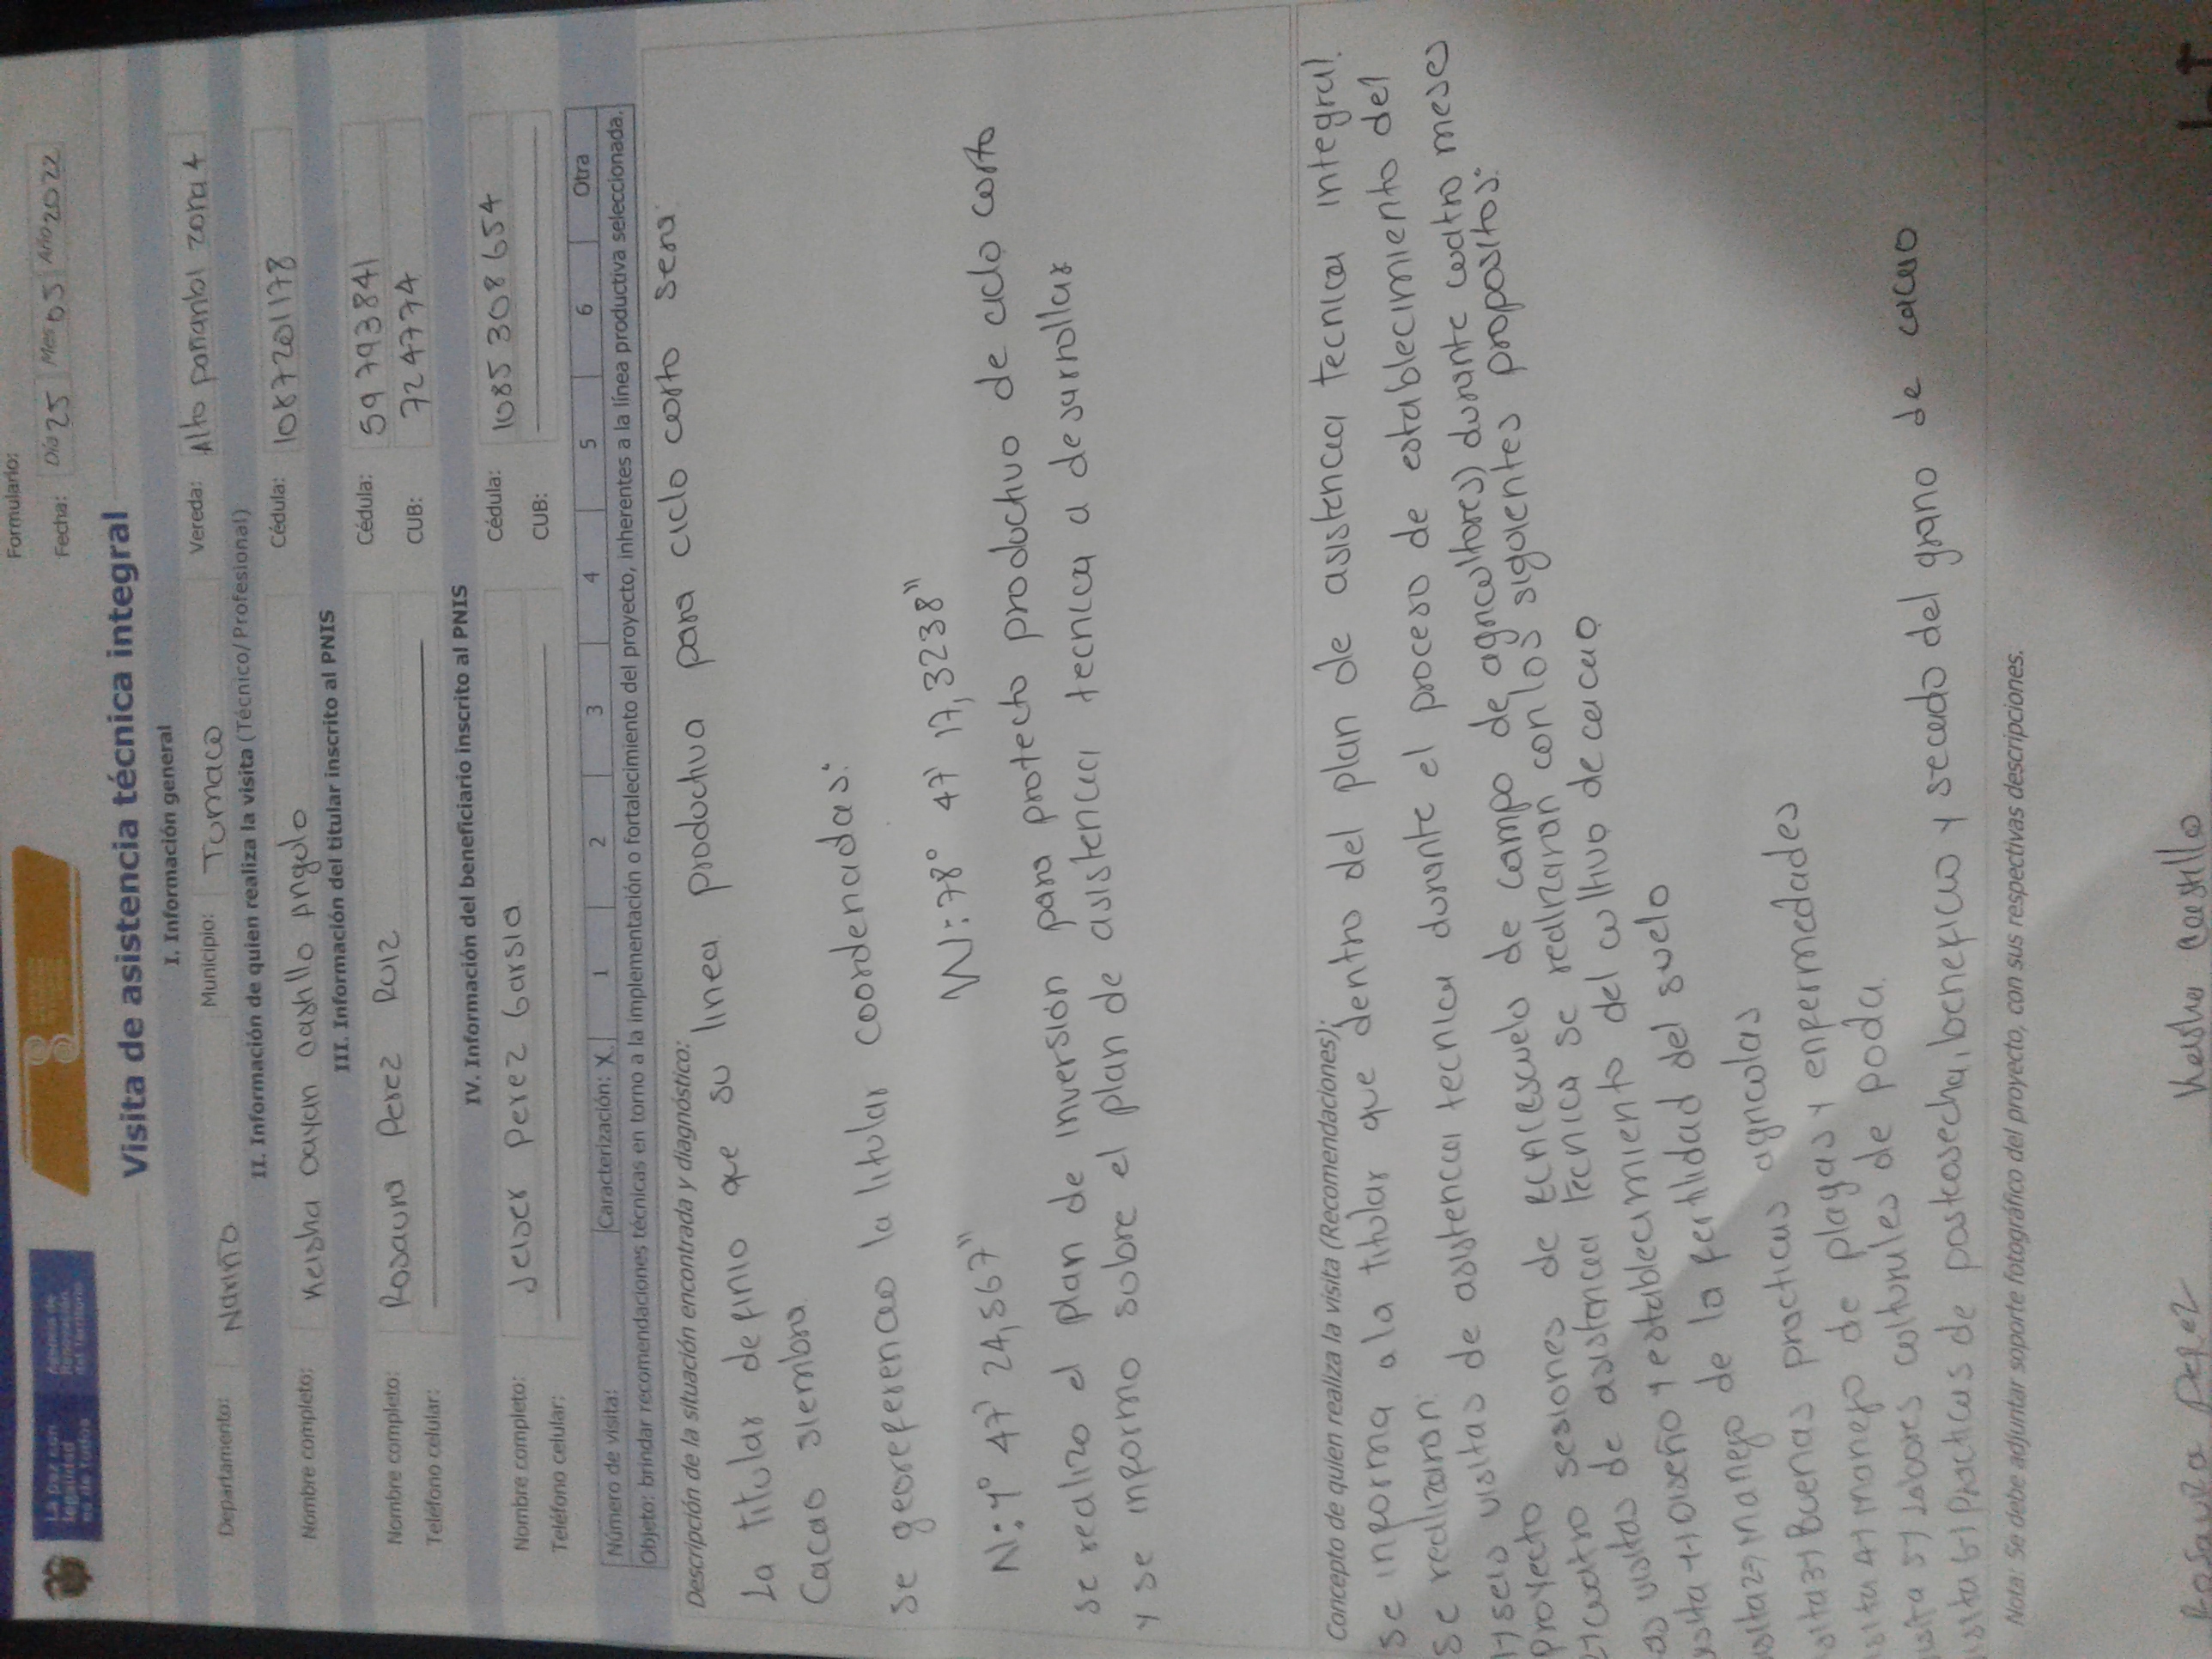 Formulario:
La paz con legalidad es de todos
Agencia de Renovación del Territorio
Fecha: Día 25 Mes 05 Año 2022
Visita de asistencia técnica integral
I. Información general
Departamento: Nariño Municipio: Tumaco Vereda: Alto pañambí zona 4
II. Información de quien realiza la visita (Técnico/Profesional)
Nombre completo: Keisha dayan castillo Angulo Cédula: 1087201178
III. Información del titular inscrito al PNIS
Nombre completo: Rosaura Perez Ruiz Cédula: 59793841
Teléfono celular: CUB: 724774
IV. Información del beneficiario inscrito al PNIS
Nombre completo: Jeiser Perez Garsia Cédula: 1085308654
Teléfono celular: CUB:
Número de visita: Caracterización: X 1 2 3 4 5 6 Otra
Objeto: brindar recomendaciones técnicas en torno a la implementación o fortalecimiento del proyecto, inherentes a la línea productiva seleccionada.
Descripción de la situación encontrada y diagnóstico:
La titular definio que su linea productiva para ciclo corto sera:
Cacao siembra.
se georeferencio la titular coordenadas:
N: 1° 47' 24,567" W: 78° 47' 17,3238"
se realizo el plan de inversion para protecto productivo de ciclo corto
y se informo sobre el plan de asistencia tecnica a desarrollar
Concepto de quien realiza la visita (Recomendaciones):
se informa a la titular que dentro del plan de asistencia tecnica integral.
se realizaran:
1) seis visitas de asistencia tecnica durante el proceso de establecimiento del
proyecto
2) cuatro sesiones de (escuela de campo de agricultores) durante cuatro meses
as visitas de asistencia tecnica se realizaran con los siguientes propositos:
isita 1) Diseño y establecimiento del cultivo de cacao
isita 2) manejo de la fertilidad del suelo
isita 3) Buenas practicas agricolas
isita 4) manejo de plagas y enfermedades
isita 5) labores culturales de poda.
isita 6) Practicas de postcosecha, beneficio y secado del grano de cacao
Nota: Se debe adjuntar soporte fotográfico del proyecto, con sus respectivas descripciones.
Rosaura Perez Keisha castillo